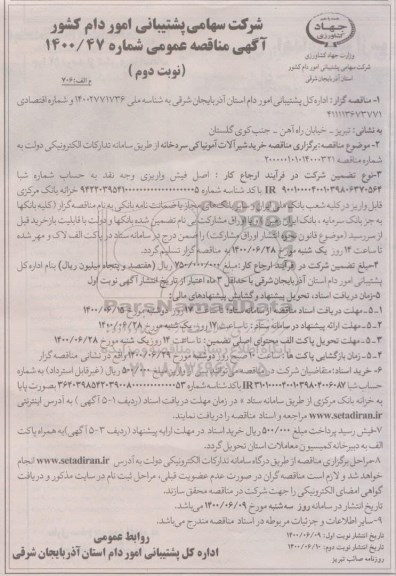 جهاد
کشاورزی
وزارت جهاد کشاورزی
شرکت سهامی پشتیبانی امور دام کشور
استان آذربایجان شرقی
شرکت سهامی پشتیبانی امور دام کشور
آگهی مناقصه عمومی شماره ۱۴۰۰/۴۷
(نوبت دوم)
م الف: ۴۰۶
۱- مناقصه گزار: اداره کل پشتیبانی امور دام استان آذربایجان شرقی به شناسه ملی ۱۴۰۰۲۷۷۱۷۳۶ و شماره اقتصادی
۴۱۱۱۳۶۷۳۷۷۱
به نشانی: تبریز - خیابان راه آهن - جنب کوی گلستان
۲- موضوع مناقصه: برگزاری مناقصه خرید شیرآلات آمونیاکی سردخانه از طریق سامانه تدارکات الکترونیکی دولت به
شماره مناقصه ۲۰۰۰۰۰۱۰۱۰۱۴۰۰۰۳۲۱
۳- نوع تضمین شرکت در فرآیند ارجاع کار: اصل فیش واریزی وجه نقد به حساب شماره شبا
با کد شناسه شماره خزانه بانک مرکزی
قابل واریز در کلیه شعب بانک
به جز بانک سرمایه ، بانک
از سررسید (موضوع قانون نحوه انتشار اوراق مشارکت) را ضمن درج در سامانه ستاد در پاکت الف لاک و مهر شده
تا ساعت ۱۴ روز یک شنبه مورخ ۱۴۰۰/۰۶/۲۸ به مناقصه گزار تسلیم گردد.
۴- مبلغ تضمین شرکت در فرآیند ارجاع کار: مبلغ ۷۵۰/۰۰۰/۰۰۰ ریال (هفتصد و پنجاه میلیون ریال) بنام اداره کل
پشتیبانی امور دام استان آذربایجان شرقی با حداقل ۳ ماه اعتبار از تاریخ انتشار آگهی نوبت اول
۵- زمان دریافت اسناد، تحویل پیشنهاد و گشایش پیشنهادهای مالی:
۱-۵- مهلت دریافت اسناد مناقصه مورخ ۱۴۰۰/۰۶/۱۵
۲-۵- مهلت ارائه پیشنهاد در سامانه ستاد: تا ساعت ۱۷ روز یک شنبه مورخ ۱۴۰۰/۰۶/۲۸
۳-۵- مهلت تحویل پاکت الف محتوای اصلی تضمین: تا ساعت ۱۴ روز یک شنبه مورخ ۱۴۰۰/۰۶/۲۸
۴-۵- زمان بازگشایی پاکت ها: ساعت ۱۰ صبح روز دوشنبه مورخ ۱۴۰۰/۰۶/۲۹ واقع در نشانی مناقصه گزار
۶- خرید اسناد: متقاضیان شرکت در مناقصه می توانند با واریز مبلغ ۵۰۰/۰۰۰ ریال (غیرقابل استرداد) به شماره
حساب شبا با کد شناسه شماره بصورت پایا
به خزانه بانک مرکزی از طریق سامانه ستاد « در زمان مهلت دریافت اسناد (ردیف ۱-۵ آگهی ) به آدرس اینترنتی
www.setadiran.ir مراجعه و اسناد مناقصه را دریافت نمایند.
۷- فیش رسید پرداخت مبلغ ۵۰۰/۰۰۰ ریال خرید اسناد در مهلت ارایه پیشنهاد (ردیف ۳-۵ آگهی) به همراه پاکت
الف به دبیرخانه کمیسیون معاملات استان تحویل گردد.
۸- مراحل برگزاری مناقصه از طریق درگاه سامانه تدارکات الکترونیکی دولت به آدرس www.setadiran.ir انجام
خواهد شد و لازم است مناقصه گران در صورت عدم عضویت قبلی، مراحل ثبت نام در سایت مذکور و دریافت
گواهی امضای الکترونیکی را جهت شرکت در مناقصه محقق سازند.
تاریخ انتشار در سامانه روز سه شنبه مورخ ۱۴۰۰/۰۶/۰۹ می باشد.
۹- سایر اطلاعات و جزئیات مربوطه در اسناد مناقصه مندرج می باشد.
تاریخ انتشار نوبت اول: ۱۴۰۰/۰۶/۰۹
تاریخ انتشار نوبت دوم: ۱۴۰۰/۰۶/۱۰
روزنامه صائب تبریز
روابط عمومی
اداره کل پشتیبانی امور دام استان آذربایجان شرقی